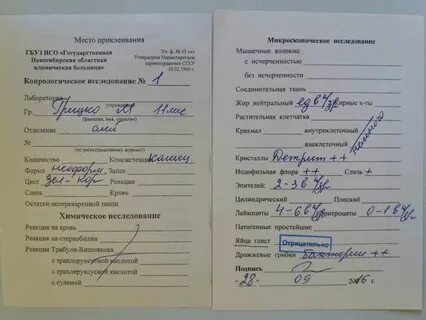 Место приклеивания
ГБУЗ НСО «Государственная
Новосибирская областная
клиническая больница»
Уч. ф. № 45-ла
Утверждено Министерством
здравоохранения СССР
10.02.1969 г.
Копрологическое исследование № 1
Лаборатория
(учреждение)
Гр. Грицко М 11 мес
(фамилия, имя, отчество)
Отделение
№
(по регистрационному журналу)
Количество Консистенция кашиц
Форма неоформ Запах
Цвет зел-кор Реакция
Остатки непереваренной пищи
Химическое исследование
Реакция на кровь
Реакция на стеркобилин
Реакция Трибуле-Вишнякова
с трихлоруксусной кислотой
с сулемой
Микроскопическое исследование
Мышечные волокна:
с исчерченностью
без исчерченности
Соединительная ткань
Жир нейтральный ед в п/зр Жирные к-ты
Растительная клетчатка
Крахмал внутриклеточный
внеклеточный
Кристаллы Детрит ++
Йодофильная флора ++ Слизь +
Эпителий: 2-3 в п/зр
Цилиндрический Плоский
Лейкоциты 4-6 в п/зр Эритроциты 0-1 в п/зр
Патогенные простейшие
Яйца глист Отрицательно
Дрожжевые грибки Бактерии ++
Подпись
«28» 09 2016 г.